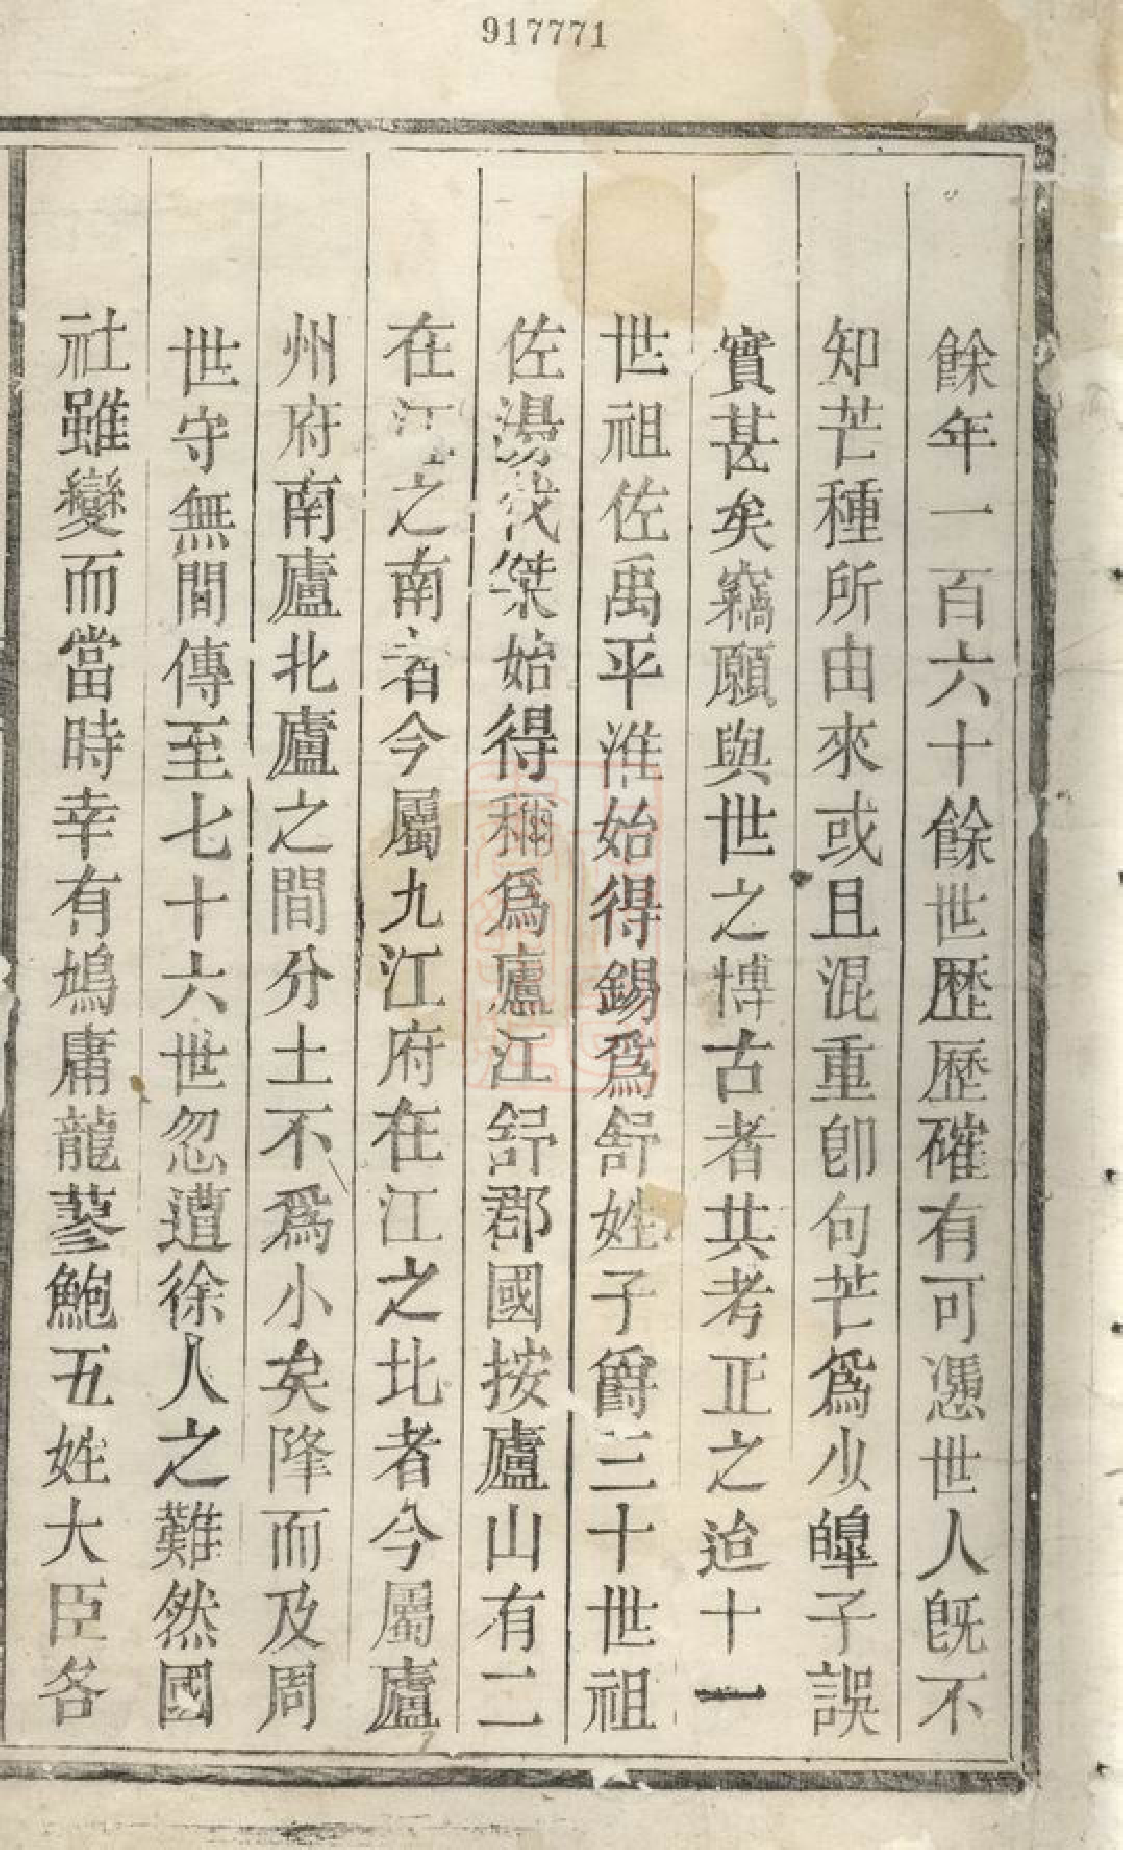 917771
餘年一百六十餘世歷歷確有可憑世人旣不
知芒種所由來或且混重卽句芒爲少皥子誤
實甚矣竊願與世之博古者共考正之迨十一
世祖佐禹平淮始得錫爲舒姓子爵三十世祖
佐湯伐桀始得稱爲廬江舒郡國按廬山有二
在江之南者今屬九江府在江之北者今屬廬
州府南廬北廬之間分土不爲小矣降而及周
世守無間傳至七十六世忽遭徐人之難然國
社雖變而當時幸有鳩庸龍蓼鮑五姓大臣各